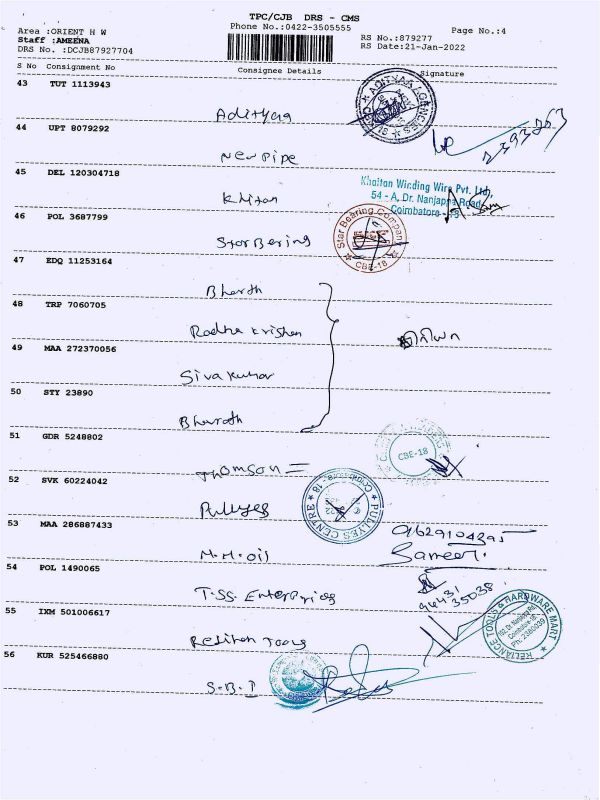 TPC/CJB DRS - CMS
Area :ORIENT H W
Phone No.:0422-3505555
Page No.:4
Staff :AMEENA
RS No.:879277
DRS No. :DCJB87927704
RS Date:21-Jan-2022
S No Consignment No Consignee Details Signature
43 TUT 1113943
Adityaa
ADITYAA AGENCIES
44 UPT 8079292
New Pipe
45 DEL 120304718
Khitan
Khaitan Winding Wire Pvt. Ltd,
54 - A, Dr. Nanjappa Road,
Coimbatore - 18
46 POL 3687799
Star Bering
Star Bearing Company
CBE-18
47 EDQ 11253164
Bharth
48 TRP 7060705
Radha Krishan
49 MAA 272370056
Sivakumar
50 STY 23890
Bharath
51 GDR 5248802
CBE-18
Thomson
52 SVK 60224042
Pullyes
PULLYES CENTRE
Coimbatore - 18
53 MAA 286887433
M.M. oil
9629104395
Sameer.
54 POL 1490065
T.S.S. Enterprices
94431
35038
55 IXM 501006617
Relitan Tools
RELIANCE TOOLS & HARDWARE MART
Coimbatore-18
56 KUR 525466880
S.B.I